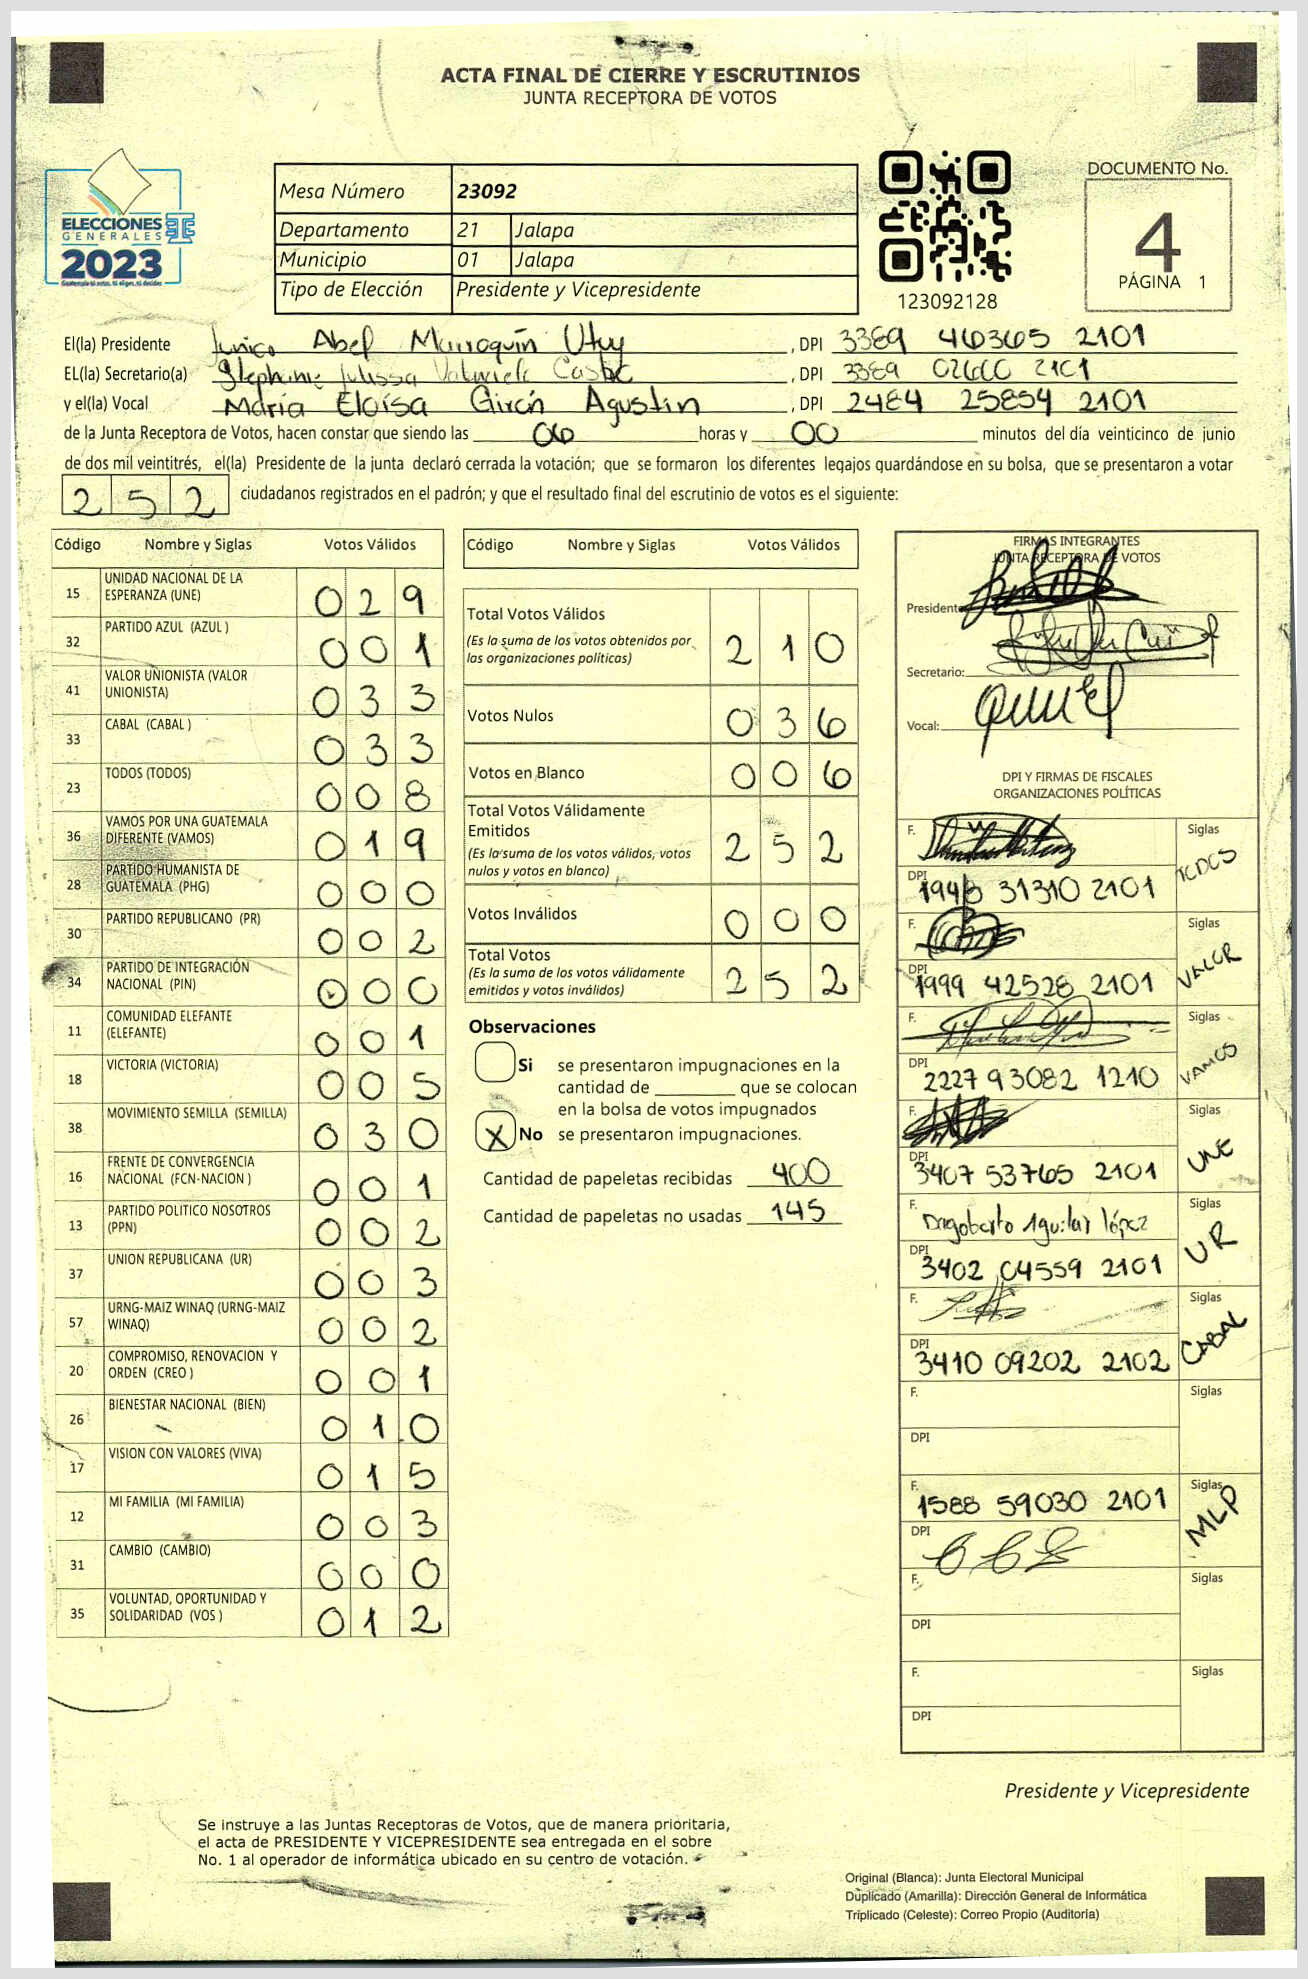 ACTA FINAL DE CIERRE Y ESCRUTINIOS
JUNTA RECEPTORA DE VOTOS
ELECCIONES
GENERALES
2023
Mesa Número 23092
Departamento 21 Jalapa
Municipio 01 Jalapa
Tipo de Elección Presidente y Vicepresidente
123092128
DOCUMENTO No.
4
PÁGINA 1
El(la) Presidente Abel Marroquín , DPI 3389 46365 2101
EL(la) Secretario(a) Julissa , DPI 3389 02600 2101
y el(la) Vocal María Eloísa Girón Agustin , DPI 2484 25854 2101
de la Junta Receptora de Votos, hacen constar que siendo las 06 horas y 00 minutos del día veinticinco de junio
de dos mil veintitrés, el(la) Presidente de la junta declaró cerrada la votación; que se formaron los diferentes legajos guardándose en su bolsa, que se presentaron a votar
252 ciudadanos registrados en el padrón; y que el resultado final del escrutinio de votos es el siguiente:
Código Nombre y Siglas Votos Válidos
15 UNIDAD NACIONAL DE LA ESPERANZA (UNE) 029
32 PARTIDO AZUL (AZUL ) 001
41 VALOR UNIONISTA (VALOR UNIONISTA) 033
33 CABAL (CABAL ) 033
23 TODOS (TODOS) 008
36 VAMOS POR UNA GUATEMALA DIFERENTE (VAMOS) 019
28 PARTIDO HUMANISTA DE GUATEMALA (PHG) 000
30 PARTIDO REPUBLICANO (PR) 002
34 PARTIDO DE INTEGRACIÓN NACIONAL (PIN) 000
11 COMUNIDAD ELEFANTE (ELEFANTE) 001
18 VICTORIA (VICTORIA) 005
38 MOVIMIENTO SEMILLA (SEMILLA) 030
16 FRENTE DE CONVERGENCIA NACIONAL (FCN-NACION ) 001
13 PARTIDO POLITICO NOSOTROS (PPN) 002
37 UNION REPUBLICANA (UR) 003
57 URNG-MAIZ WINAQ (URNG-MAIZ WINAQ) 002
20 COMPROMISO, RENOVACION Y ORDEN (CREO ) 001
26 BIENESTAR NACIONAL (BIEN) 010
17 VISION CON VALORES (VIVA) 015
12 MI FAMILIA (MI FAMILIA) 003
31 CAMBIO (CAMBIO) 000
35 VOLUNTAD, OPORTUNIDAD Y SOLIDARIDAD (VOS ) 012
Código Nombre y Siglas Votos Válidos
Total Votos Válidos 210
(Es la suma de los votos obtenidos por
las organizaciones políticas)
Votos Nulos 036
Votos en Blanco 006
Total Votos Válidamente
Emitidos 252
(Es la suma de los votos válidos, votos
nulos y votos en blanco)
Votos Inválidos 000
Total Votos 252
(Es la suma de los votos válidamente
emitidos y votos inválidos)
Observaciones
Si se presentaron impugnaciones en la
cantidad de ________ que se colocan
en la bolsa de votos impugnados
X No se presentaron impugnaciones.
Cantidad de papeletas recibidas 400
Cantidad de papeletas no usadas 145
FIRMAS INTEGRANTES
JUNTA RECEPTORA DE VOTOS
Presidente
Secretario:
Vocal:
DPI Y FIRMAS DE FISCALES
ORGANIZACIONES POLÍTICAS
F. Siglas TODOS
DPI 1948 31310 2101
F. Siglas VALOR
DPI 1999 42528 2101
F. Siglas VAMOS
DPI 2227 93082 1210
F. Siglas UNE
DPI 3407 53765 2101
F. Dagoberto Aguilar López Siglas UR
DPI 3402 04559 2101
F. Siglas CABAL
DPI 3410 09202 2102
F. Siglas
DPI
F. 1588 59030 2101 Siglas MLP
DPI
F. Siglas
DPI
F. Siglas
DPI
Presidente y Vicepresidente
Se instruye a las Juntas Receptoras de Votos, que de manera prioritaria,
el acta de PRESIDENTE Y VICEPRESIDENTE sea entregada en el sobre
No. 1 al operador de informática ubicado en su centro de votación.
Original (Blanca): Junta Electoral Municipal
Duplicado (Amarilla): Dirección General de Informática
Triplicado (Celeste): Correo Propio (Auditoría)